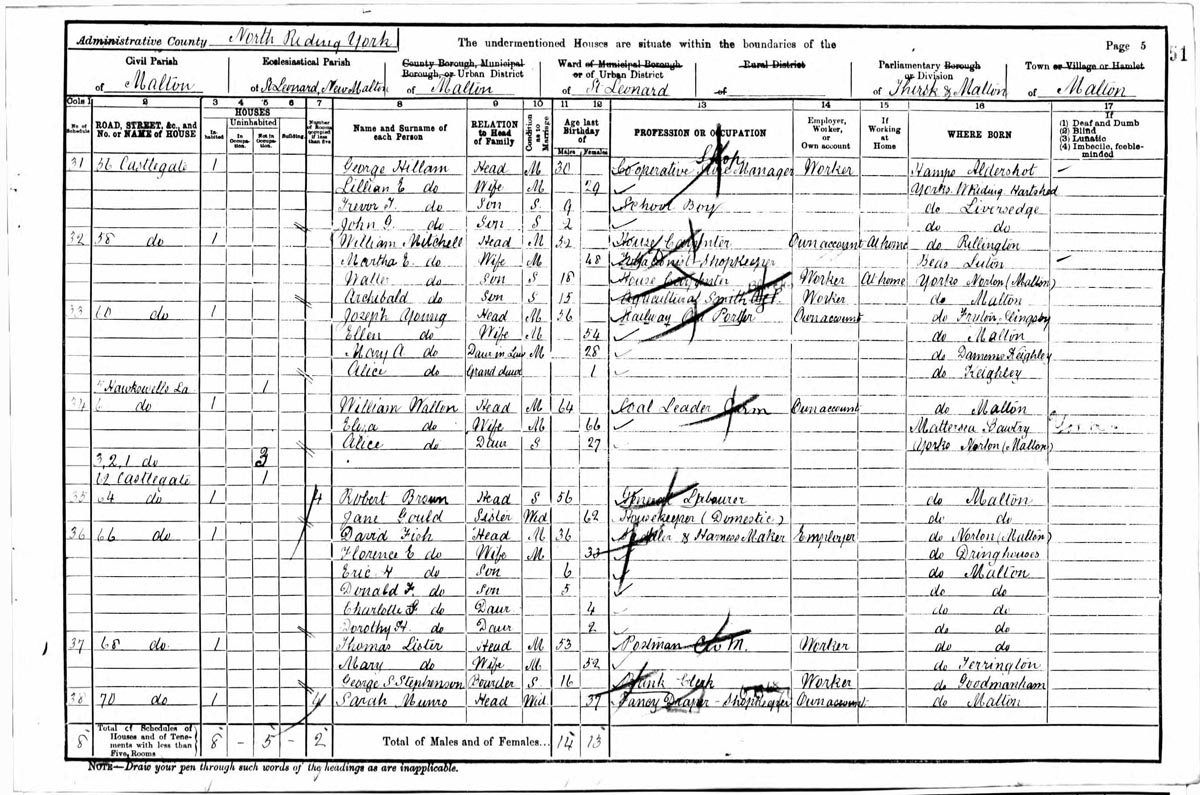 Administrative County North Riding York The undermentioned Houses are situate within the boundaries of the Page 5
51
Civil Parish Ecclesiastical Parish County Borough, Municipal Borough, or Urban District Ward of Municipal Borough or of Urban District Rural District Parliamentary Borough or Division Town or Village or Hamlet
of Malton of St Leonard, New Malton of Malton of St Leonard of of Thirsk & Malton of Malton
Cols 1 2 3 4 5 6 7 8 9 10 11 12 13 14 15 16 17
No. of Schedule ROAD, STREET, &c., and No. or NAME of HOUSE HOUSES Inhabited Uninhabited In Occupation Not in Occupation Building Number of Rooms occupied if less than five Name and Surname of each Person RELATION to Head of Family Condition as to Marriage Age last Birthday of Males Females PROFESSION OR OCCUPATION Employer, Worker, or Own account If Working at Home WHERE BORN If (1) Deaf and Dumb (2) Blind (3) Lunatic (4) Imbecile, feeble-minded
31 56 Castlegate 1 George Hillam Head M 30 Cooperative Store Manager Shop Worker Hamps Aldershot
Lillian E do Wife M 29 Yorks W Riding Hartshead
Trevor T. do Son S 9 School Boy do Liversedge
John G. do Son S 2 do do
32 58 do 1 William Mitchell Head M 52 House Carpenter Own account At home do Rillington
Martha E. do Wife M 48 Shopkeeper Beds Luton
Walter do Son S 18 House Carpenter Worker At home Yorks Norton (Malton)
Archibald do Son S 15 Agricultural Smith Worker do Malton
33 60 do 1 Joseph Young Head M 56 Railway Porter Own account do
Ellen do Wife M 54 do Malton
Mary A do Daur in Law M 28 do Keighley
Alice do Grand daur 1 do Keighley
5 Hawkswells La 1
34 6 do 1 William Walton Head M 64 Coal Leader Own account do Malton
Eliza do Wife M 66 Mattersea Bawtry
Alice do Daur S 27 Yorks Norton (Malton)
3, 2, 1 do 3
62 Castlegate 1
35 64 do 1 4 Robert Brown Head S 56 General Labourer do Malton
Jane Gould Sister Wid 62 Housekeeper (Domestic) do do
36 66 do 1 David Fish Head M 36 Saddler & Harness Maker Employer do Norton (Malton)
Florence E do Wife M 33 do Dringhouses
Eric H do Son 6 do Malton
Donald F. do Son 5 do do
Charlotte do Daur 4 do do
Dorothy H. do Daur 2 do do
37 68 do 1 Thomas Lister Head M 53 Postman Worker do do
Mary do Wife M 52 do Terrington
George S Stephenson Boarder S 16 Bank Clerk Worker do Goodmanham
38 70 do 1 4 Sarah Munro Head Wid 37 Fancy Draper - Shopkeeper Own account do Malton
8 Total of Schedules of Houses and of Tenements with less than Five Rooms 8 - 5 - 2 Total of Males and of Females... 14 13
NOTE—Draw your pen through such words of the headings as are inapplicable.